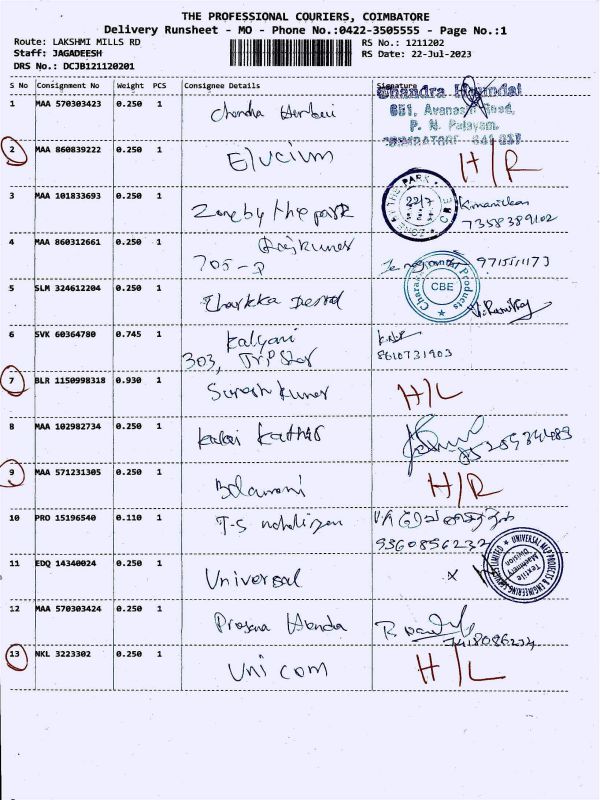 THE PROFESSIONAL COURIERS, COIMBATORE
Delivery Runsheet - MO - Phone No.:0422-3505555 - Page No.:1
Route: LAKSHMI MILLS RD RS No.: 1211202
Staff: JAGADEESH RS Date: 22-Jul-2023
DRS No.: DCJB121120201
S No Consignment No Weight PCS Consignee Details Signature
1 MAA 570303423 0.250 1
651, Avanashi Road,
P. N. Palayam,
2 MAA 860839222 0.250 1 Elucium H/R
3 MAA 101833693 0.250 1 Zone by the park THE PARK 22/7 CBE
7358389102
4 MAA 860312661 0.250 1 Rajkumar
705-
5 SLM 324612204 0.250 1 CBE Products
6 SVK 60364780 0.745 1 Kalyani
303, TVP Star 8610731903
7 BLR 1150998318 0.930 1 Suresh kumar H/L
8 MAA 102982734 0.250 1 Kalai Kathir
9 MAA 571231305 0.250 1 H/R
10 PRO 15196540 0.110 1 T-S
9360896232
11 EDQ 14340024 0.250 1 Universal x UNIVERSAL MEP PROJECTS & ENGINEERING SERVICES LIMITED Textile Machinery Division
12 MAA 570303424 0.250 1 Prasana Honda
7418086234
13 NKL 3223302 0.250 1 Uni com H/L